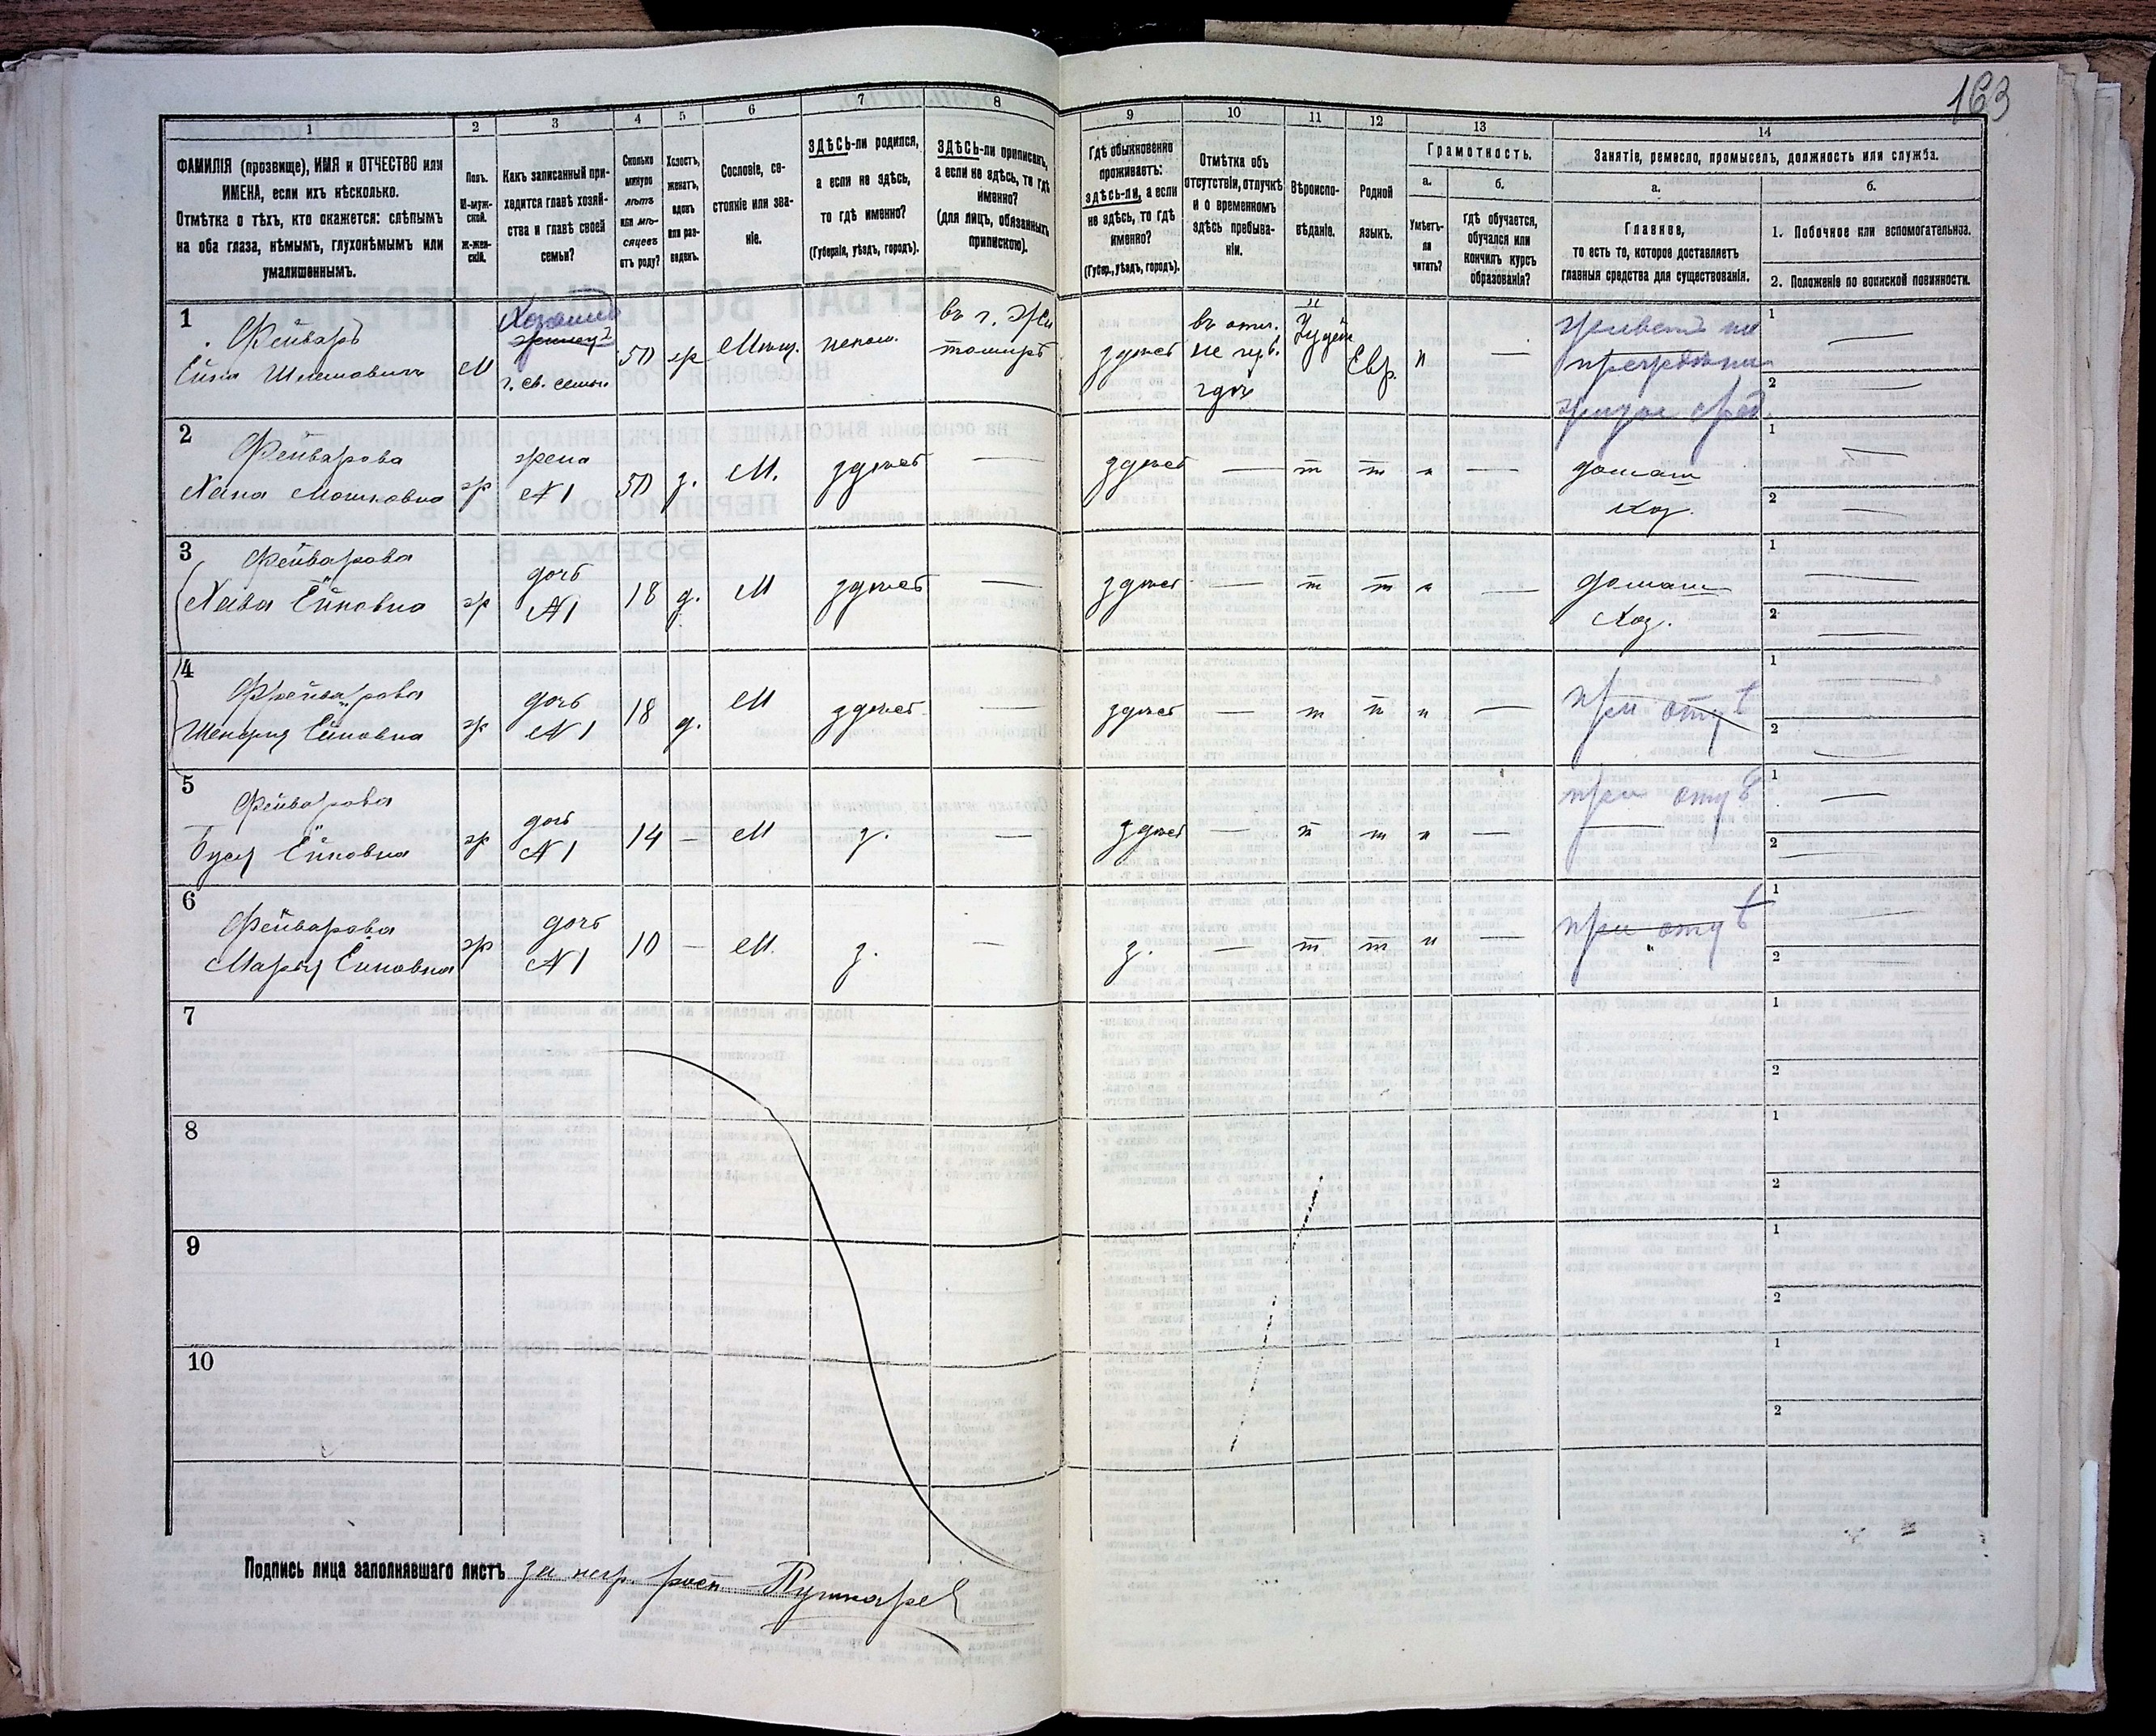 163
1
ФАМИЛІЯ (прозвище), ИМЯ и ОТЧЕСТВО или
ИМЕНА, если ихъ нѣсколько.
Отмѣтка о тѣхъ, кто окажется: слѣпымъ
на оба глаза, нѣмымъ, глухонѣмымъ или
умалишеннымъ.
2
Полъ.
М-муж-
ской.
Ж-жен-
скій.
3
Какъ записанный при-
ходится главѣ хозяй-
ства и главѣ своей
семьи?
4
Сколько
минуло
лѣтъ
или мѣ-
сяцевъ
отъ роду?
5
Холостъ,
женатъ,
вдовъ
или раз-
веденъ.
6
Сословіе, со-
стояніе или зва-
ніе.
7
ЗДѢСЬ-ли родился,
а если не здѣсь,
то гдѣ именно?
(Губернія, уѣздъ, городъ).
8
ЗДѢСЬ-ли приписанъ,
а если не здѣсь, то гдѣ
именно?
(для лицъ, обязанныхъ
припискою).
9
Гдѣ обыкновенно
проживаетъ:
здѣсь-ли, а если
не здѣсь, то гдѣ
именно?
(Губер., уѣздъ, городъ).
10
Отмѣтка объ
отсутствіи, отлучкѣ
и о временномъ
здѣсь пребыва-
ніи.
11
Вѣроиспо-
вѣданіе.
12
Родной
языкъ.
13
Грамотность.
а.
Умѣетъ-
ли
читать?
б.
Гдѣ обучается,
обучался или
кончилъ курсъ
образованія?
14
Занятіе, ремесло, промыселъ, должность или служба.
а.
Главное,
то есть то, которое доставляетъ
главныя средства для существованія.
б.
1. Побочное или вспомогательное.
2. Положеніе по воинской повинности.
1
Фейваръ
М
г. св. семьи
50
ж
Мѣщ.
въ г. Жи
томирѣ
здѣсь
въ отл.
Іудей
Евр.
н
1
2
2
Фейварова
Хана Мошковна
ж
жена
№ 1
50
з.
М.
здѣсь
здѣсь
н
домаш
хоз.
1
2
3
Фейварова
Хава Ейновна
ж
дочь
№ 1
18
д.
М
здѣсь
здѣсь
н
домаш
хоз.
1
2
4
Фейварова
ж
дочь
№ 1
18
д.
М
здѣсь
здѣсь
н
при отцѣ
1
2
5
Фейварова
Буся Ейновна
ж
дочь
№ 1
14
М
з.
здѣсь
н
при отцѣ
1
2
6
Фейварова
Марья Ейновна
ж
дочь
№ 1
10
М.
з.
з.
н
при отцѣ
1
2
7
1
2
8
1
2
9
1
2
10
1
2
Подпись лица заполнявшаго листъ за негр. росп.